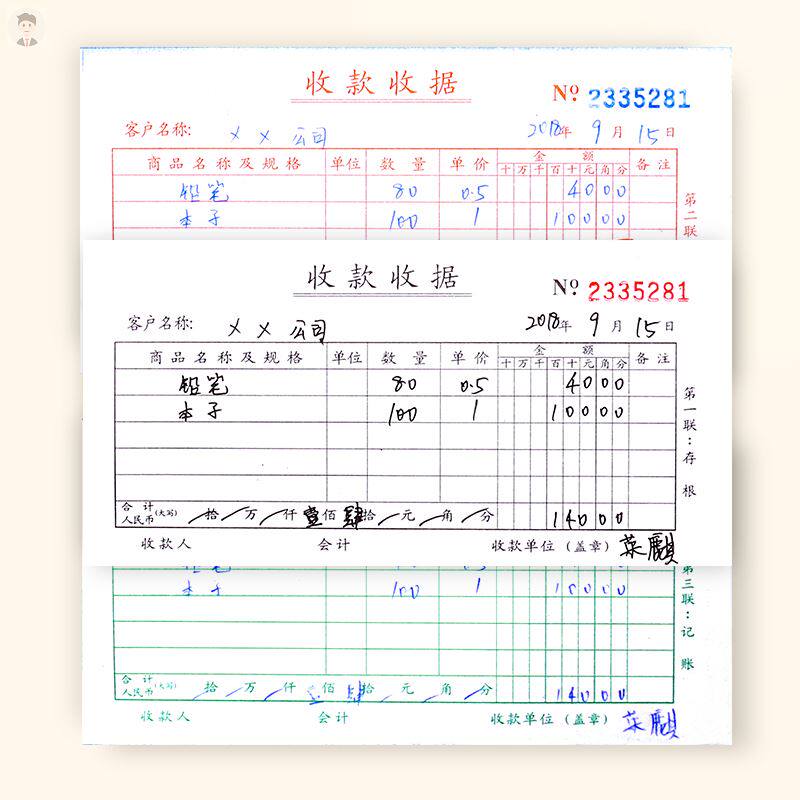 收款收据
No 2335281
客户名称: ××公司 2018年9月15日
商品名称及规格 单位 数量 单价 金额 备注
十万千百十元角分
铅笔 80 0.5 4000
本子 100 1 10000
第二联
收款收据
No 2335281
客户名称: ××公司 2018年9月15日
商品名称及规格 单位 数量 单价 金额 备注
十万千百十元角分
铅笔 80 0.5 4000
本子 100 1 10000
第一联:存根
合计人民币(大写) 拾 万 仟 壹佰 肆拾 元 角 分 14000
收款人 会计 收款单位(盖章)
本子 100 1 10000
第三联:记账
合计人民币(大写) 拾 万 仟 壹佰 肆拾 元 角 分 14000
收款人 会计 收款单位(盖章)